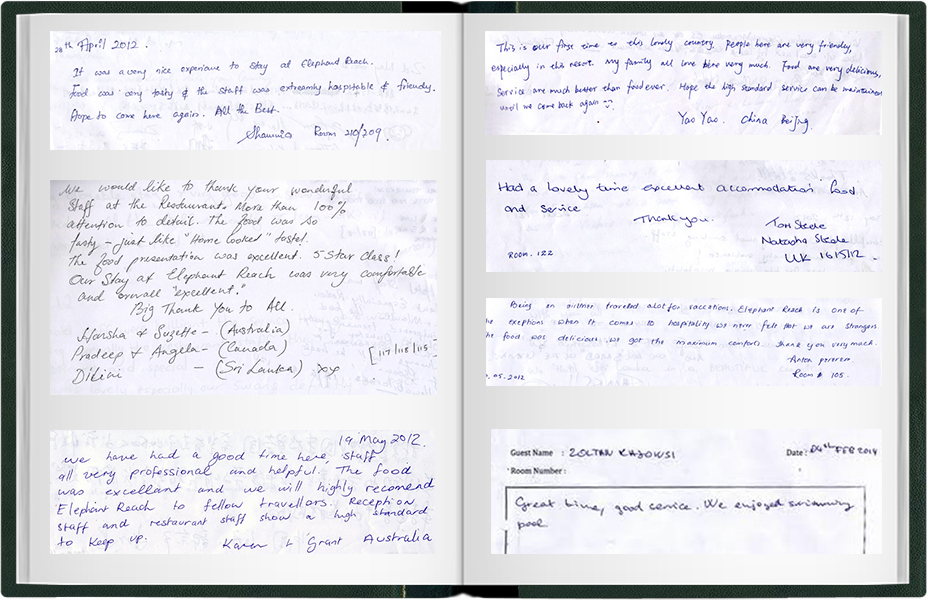 28th April 2012.
It was a very nice experiance to stay at Elephant Reach.
Food was very tasty & the staff was extreamly hospitable & friendly.
Hope to come here again. All the Best.
Room 210/209.
We would like to thank your wonderful
Staff at the Restaurant. More than 100%
attention to detail. The food was so
tasty - just like "Home Cooked" taste!.
The food presentation was excellent. 5 Star Class!
Our Stay at Elephant Reach was very comfortable
and overall "excellent."
Big Thank You to All.
Harsha & Suzette - (Australia)
Pradeep & Angela - (Canada)
[117/118/115
Dilini - (Sri Lanka) xx
19 May 2012.
We have had a good time here, staff
all very professional and helpful. The food
was excellant and we will highly recomend
Elephant Reach to fellow travellors. Reception
staff and restaurant staff show a high standard
to keep up. Karen & Grant Australia
This is our first time to this lovely country. People here are very friendly,
especially in this resort. My family all love here very much. Food are very delicious,
Service are much better than food ever. Hope the high standard service can be maintained
until we come back again
Yao Yao. China Beijing.
Had a lovely time excellent accommodation food
and service
Thank you.
Natasha
ROOM. 122
UK 16/5/12.
Being an airliner traveled alot for vaccations. Elephant Reach is one of
he exeptions when it comes to hospitality we never felt that we are strangers
he food was delicious we got the maximum comforts. thank you very much.
Anton pererea
.05.2012
Room # 105.
Guest Name : ZOLTAN
Date: 04th FEB 2014
Room Number :
Great time, good service. We enjoyed swimming
pool